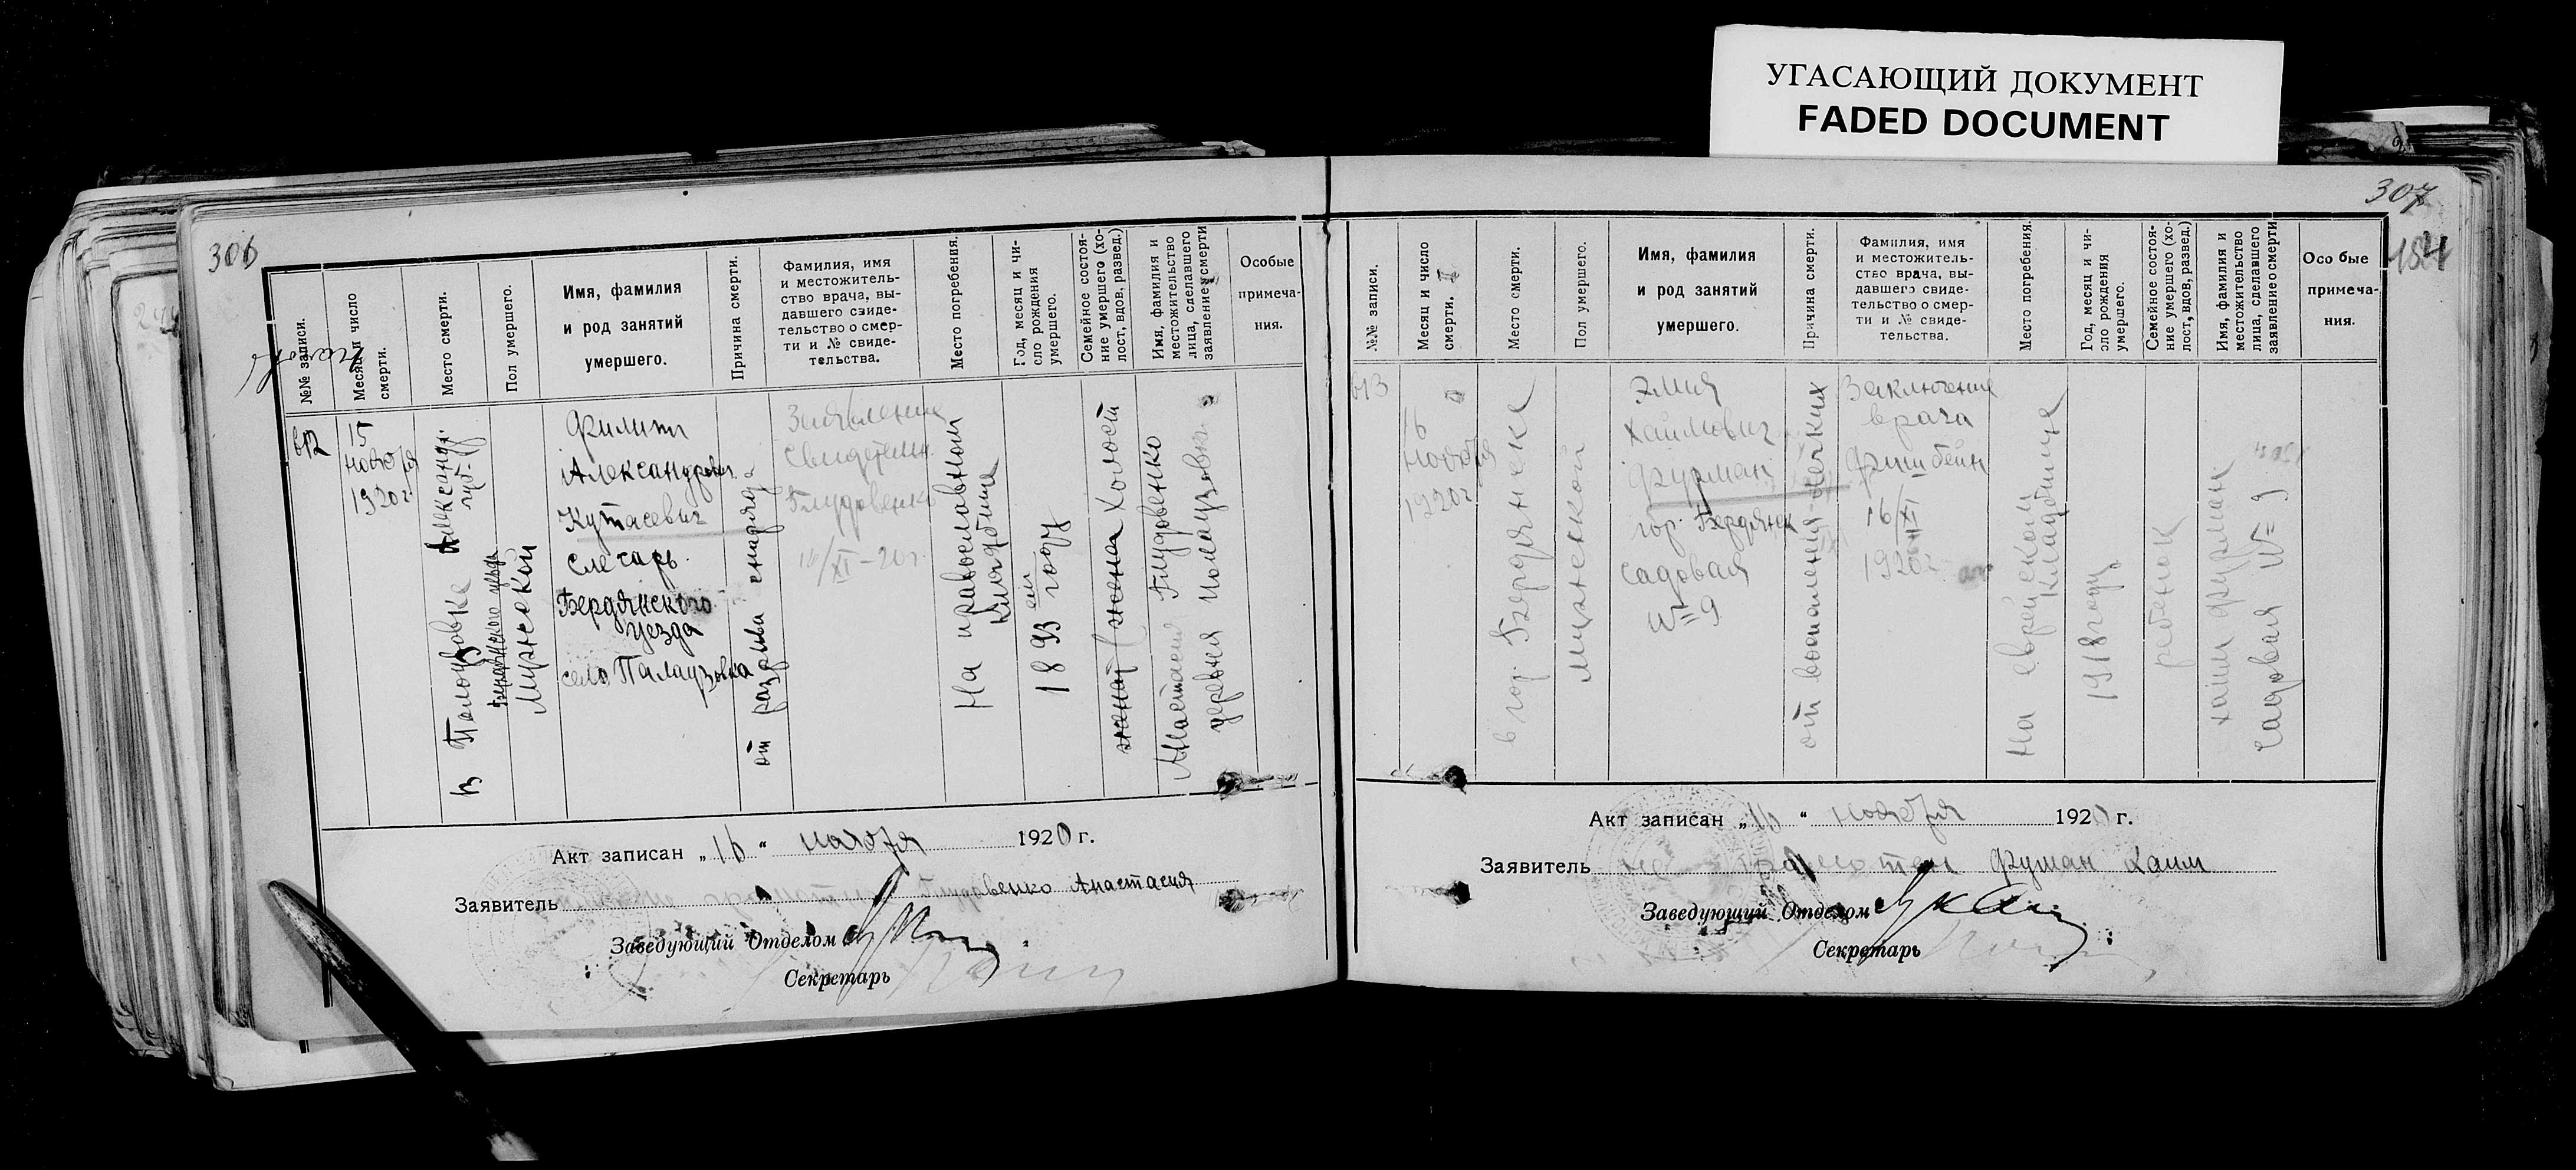 УГАСАЮЩИЙ ДОКУМЕНТ
FADED DOCUMENT
306
№№ записи.
Месяц и число смерти.
Место смерти.
Пол умершего.
Имя, фамилия
и род занятий
умершего.
Причина смерти.
Фамилия, имя
и местожитель-
ство врача, вы-
давшего свиде-
тельство о смер-
ти и № свиде-
тельства.
Место погребения.
Год, месяц и чи-
сло рождения
умершего.
Семейное состоя-
ние умершего (хо-
лост, вдов, развед.)
Имя, фамилия и
местожительство
лица, сделавшего
заявление о смерти
Особые
примеча-
ния.
612
15
ноября
1920 г
Александр.
губ-
Бердянского уезда
Мужской
Филипп
Александрович
Кутасевич
слесарь
Бердянского
уезда
село Палаузовка
от разрыва снаряда
Заявление
свидетеля
Глудовенко
16/XI-20 г
На православном
кладбище
1893 году
женат (жена Холост
Анастасия Глудовенко
деревня Полаузовка
Акт записан „16“ ноября 1920 г.
Заявитель Глудовенко Анастасия
Заведующий Отделом
Секретарь
307
184
№№ записи.
Месяц и число
смерти.
Место смерти.
Пол умершего.
Имя, фамилия
и род занятий
умершего.
Причина смерти.
Фамилия, имя
и местожитель-
ство врача, вы-
давшего свиде-
тельство о смер-
ти и № свиде-
тельства.
Место погребения.
Год, месяц и чи-
сло рождения
умершего.
Семейное состоя-
ние умершего (хо-
лост, вдов, развед.)
Имя, фамилия и
местожительство
лица, сделавшего
заявление о смерти
Особые
примеча-
ния.
613
16
ноября
1920 г
в гор. Бердянске
мужской
Элия
Хаимович
Фурман
гор. Бердянск
садовая
№ 9
от воспаления легких
Заключение
врача
Фишбейн
16/XI
1920 г
На еврейском
кладбище
1918 году
ребенок
Хаим Фурман
садовая № 9
Акт записан „16“ ноября 192 г.
Заявитель не грамотен Фуман Хаим
Заведующий Отделом
Секретарь